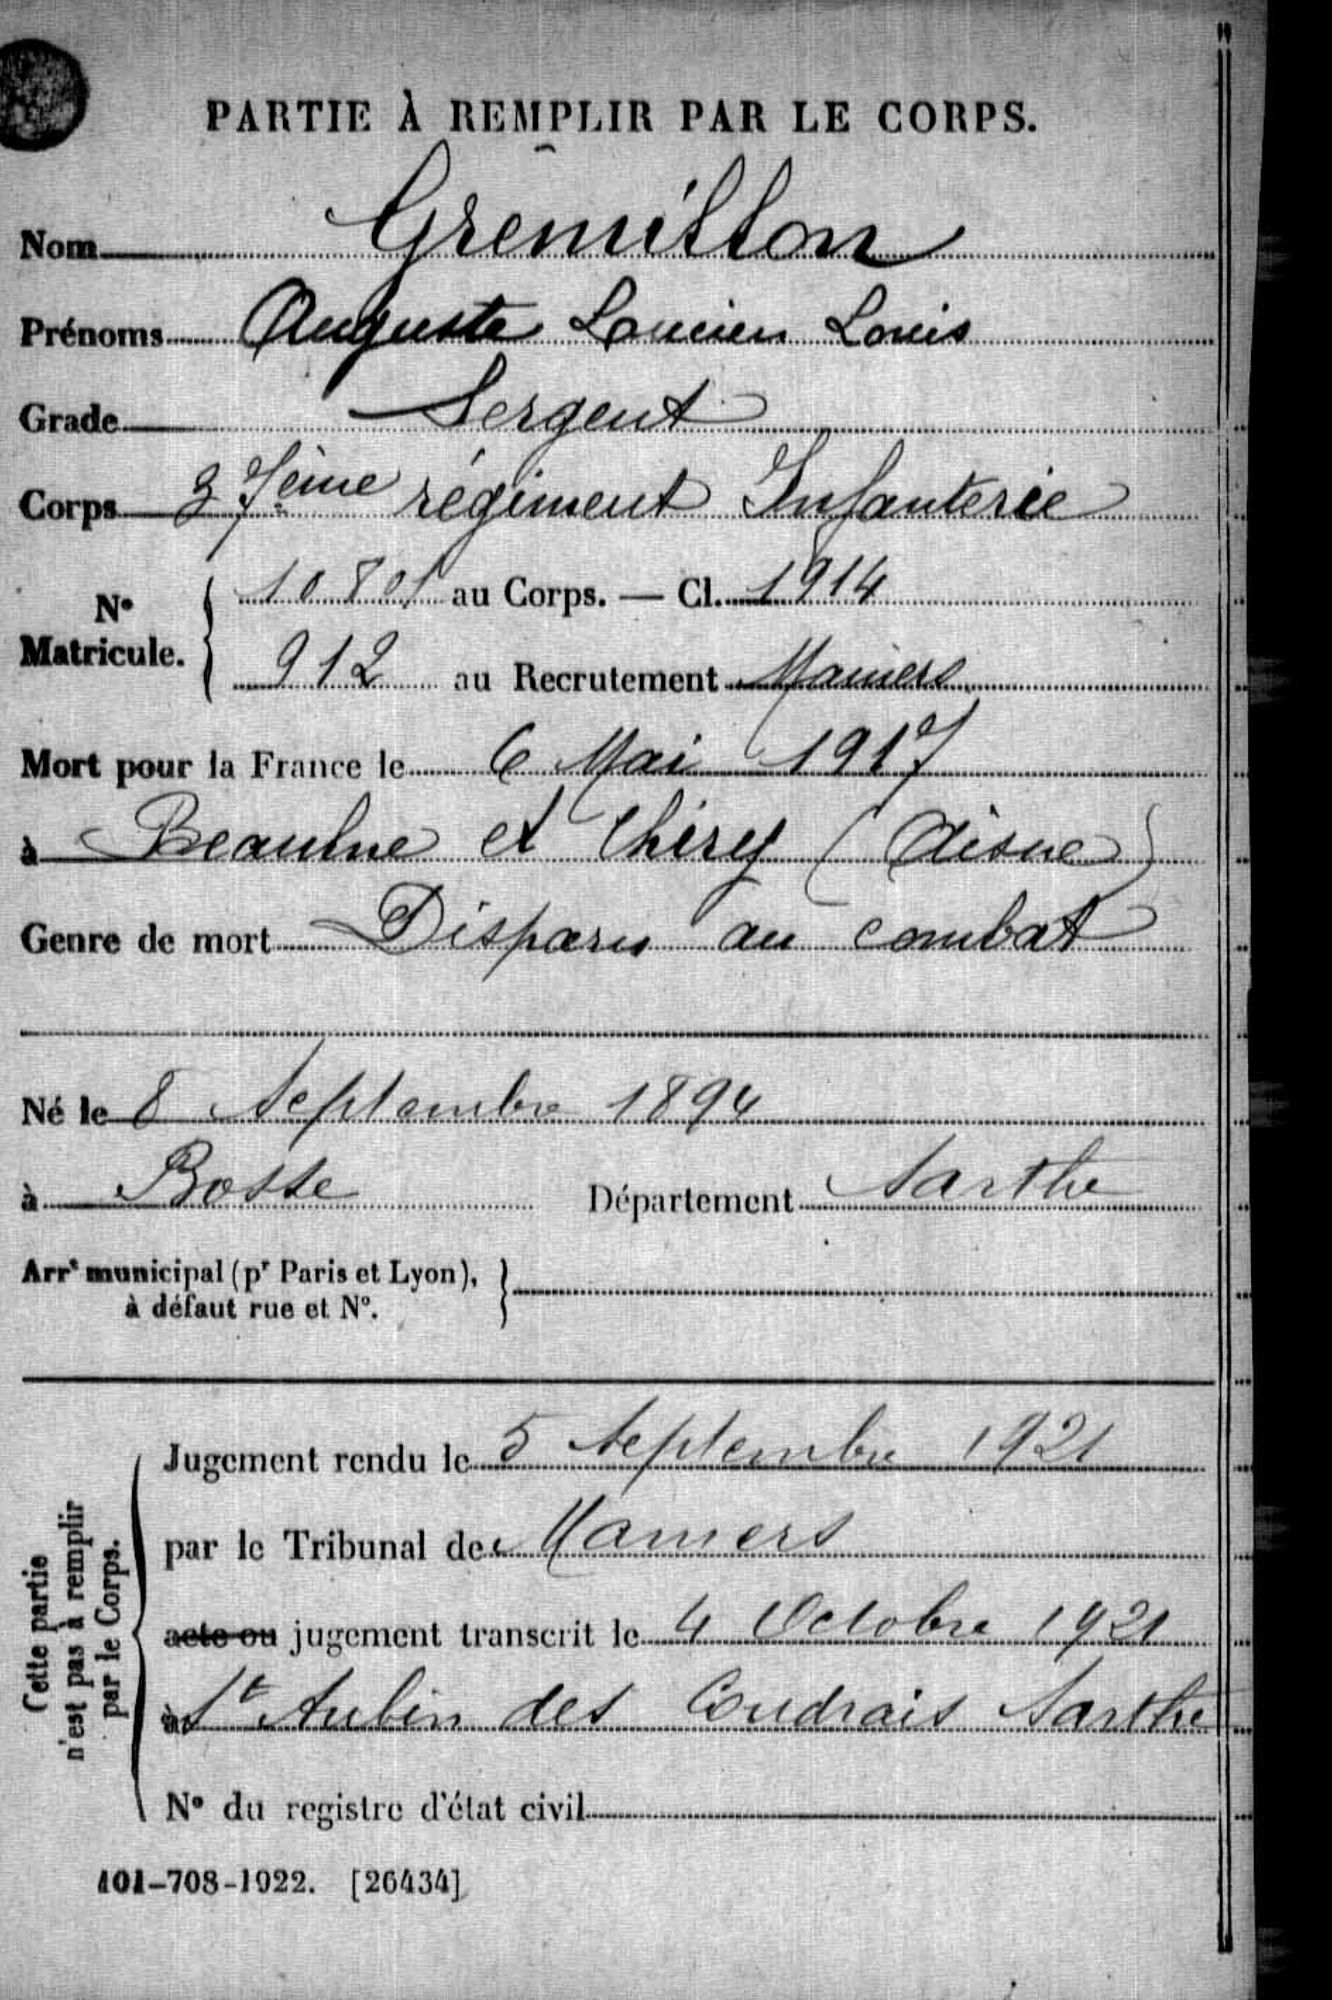 PARTIE À REMPLIR PAR LE CORPS.
Nom Gremillon
Prénoms Auguste Lucien Louis
Grade Sergent
Corps 37ème régiment Infanterie
N° Matricule. { au Corps. — Cl. 1914
912 au Recrutement Mamers
Mort pour la France le 6 Mai 1917
à Beaulne et Chivy (Aisne)
Genre de mort Disparu au combat
Né le 8 Septembre 1894
à Bosse Département Sarthe
Arrt municipal (pr Paris et Lyon), }
à défaut rue et N°.
Cette partie
n'est pas à remplir
par le Corps.
Jugement rendu le 5 Septembre 1921
par le Tribunal de Mamers
acte ou jugement transcrit le 4 Octobre 1921
à St Aubin des Coudrais Sarthe
N° du registre d'état civil
101-708-1922. [26434]